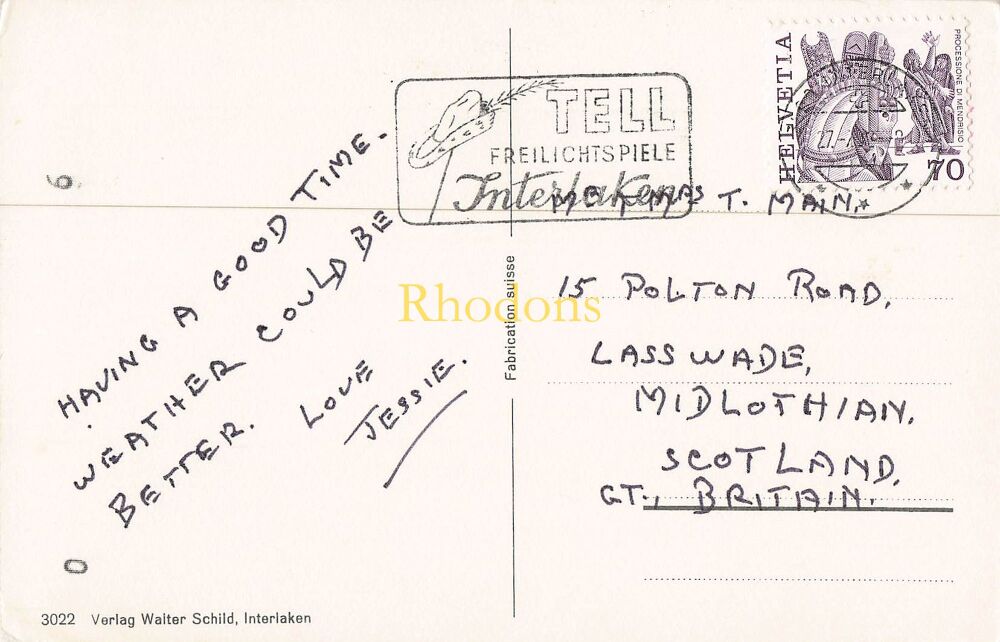 HAVING A GOOD TIME.
WEATHER COULD BE
BETTER.
LOVE
JESSIE.
TELL
FREILICHTSPIELE
Interlaken
HELVETIA
PROCESSIONE DI MENDRISIO
70
T. MAIN.
15 POLTON ROAD,
LASSWADE,
MIDLOTHIAN.
SCOTLAND,
GT., BRITAIN.
Fabrication suisse
Rhodons
6
0
3022 Verlag Walter Schild, Interlaken